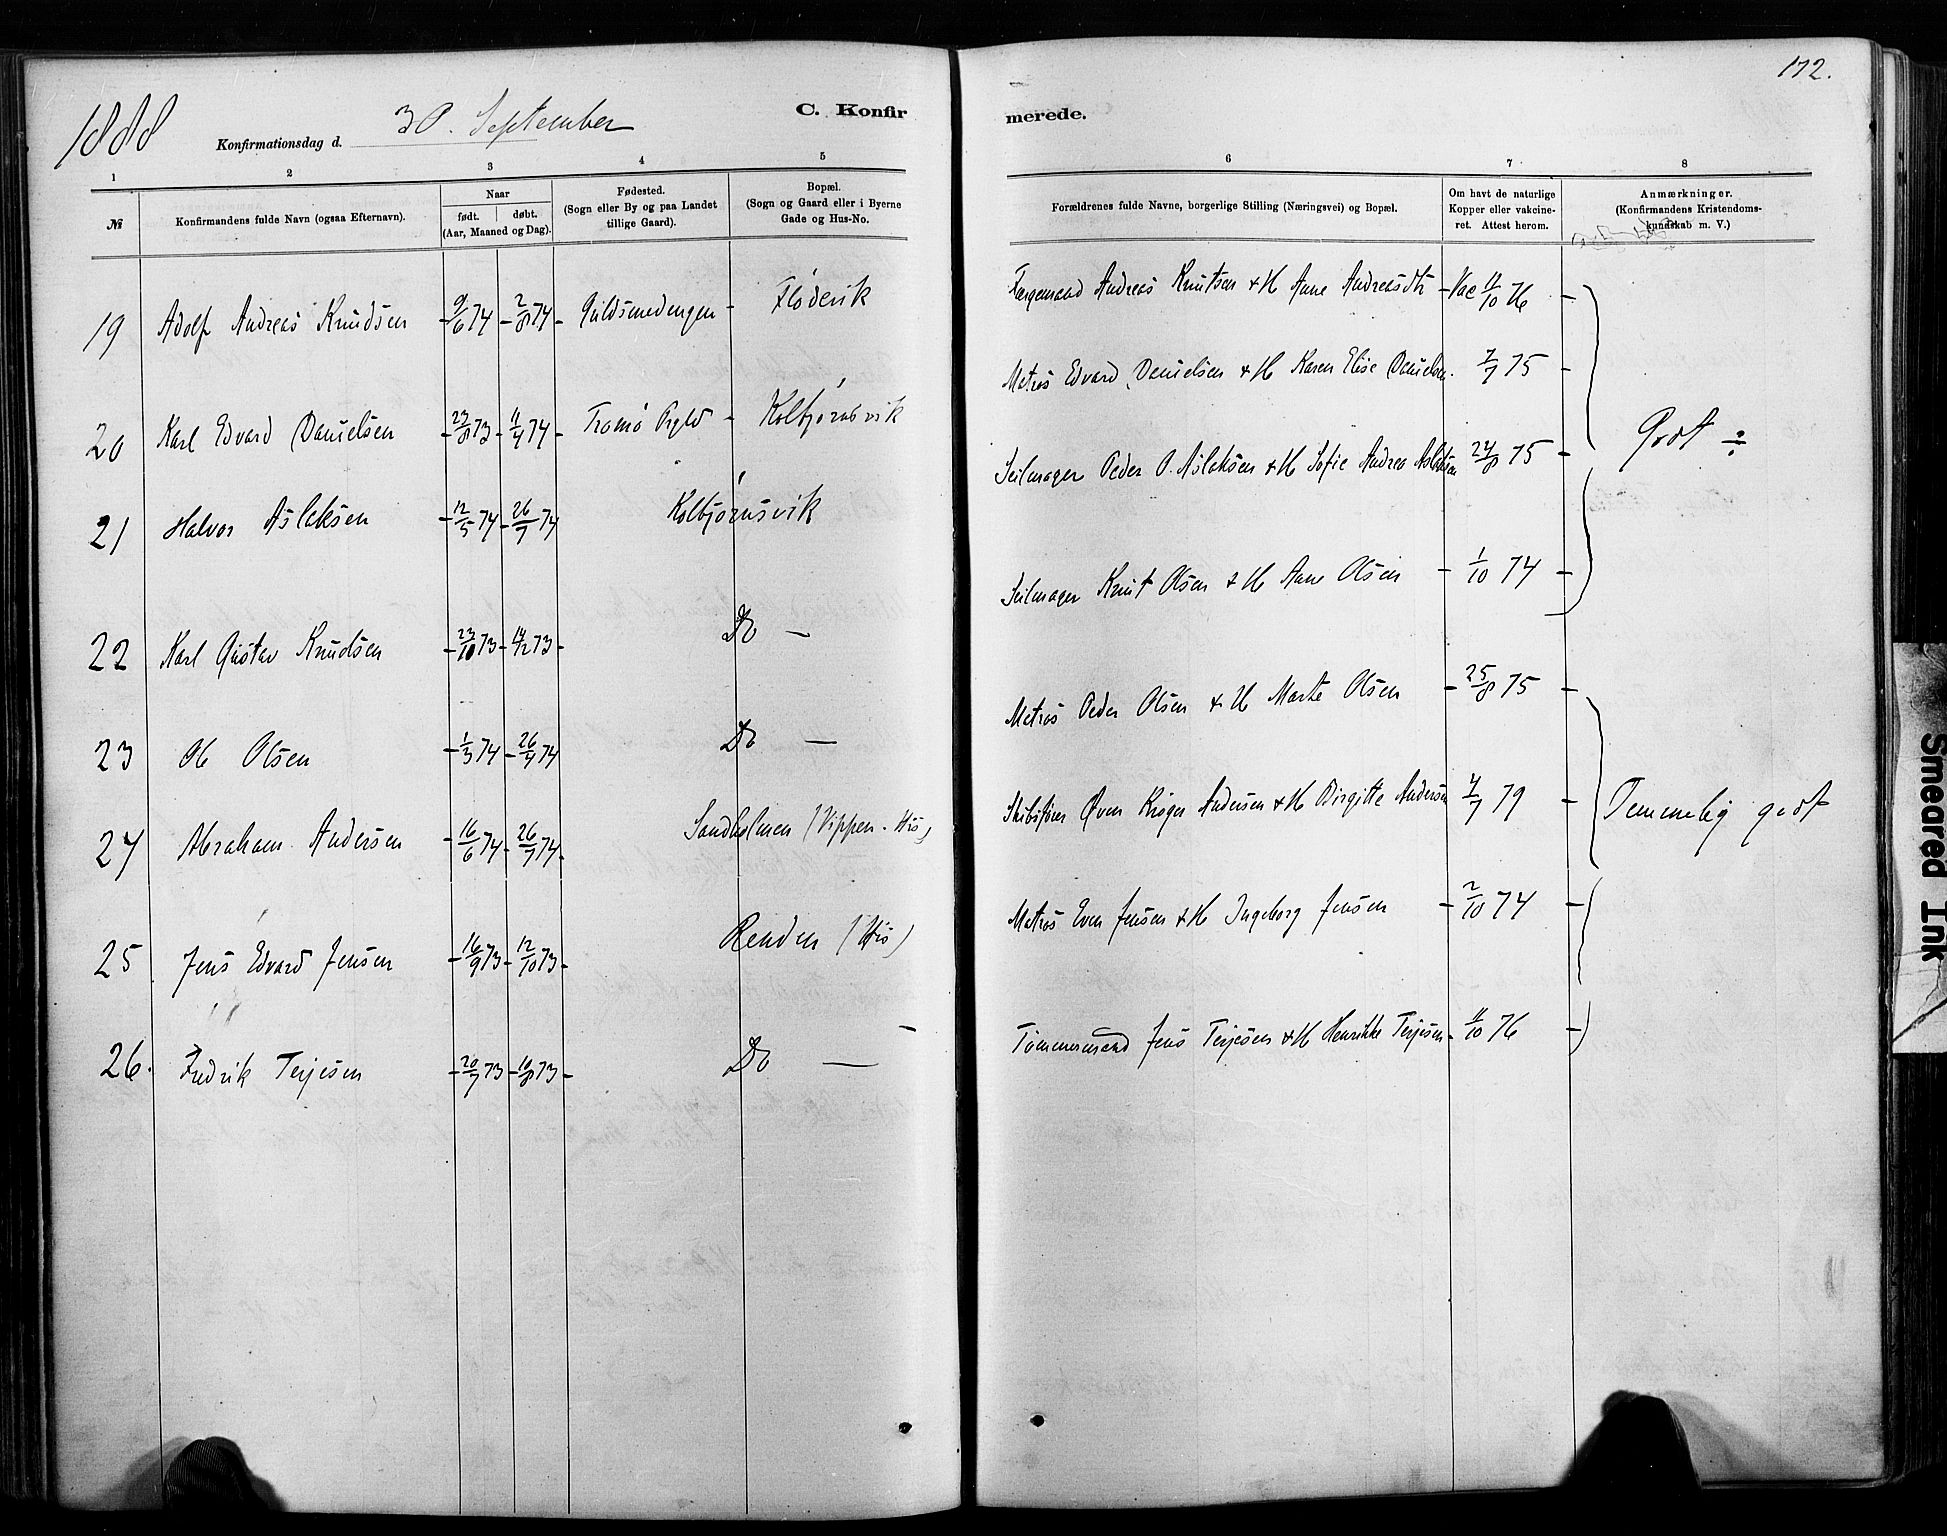 172.
1888
Konfirmationsdag d. 30. September
C. Konfir
merede.
1 2 3 4 5 6 7 8
№
Konfirmandens fulde Navn (ogsaa Efternavn).
Naar
født. døbt.
(Aar, Maaned og Dag).
Fødested.
(Sogn eller By og paa Landet
tillige Gaard).
Bopæl.
(Sogn og Gaard eller i Byerne
Gade og Hus-No.
Forældrenes fulde Navne, borgerlige Stilling (Næringsvei) og Bopæl.
Om havt de naturlige
Kopper eller vakcine-
ret. Attest herom.
Anmærkninger.
(Konfirmandens Kristendoms-
kundskab m. V.)
19 Adolf Andreas Knudsen - 9/6 74 - 2/8 74 - Guldsmedengen - Flødevik
Færgemand Andreas Knutsen & H Anne Andreasdtr - Vac 11/10 76 -
20 Karl Edvard Danielsen - 23/8 73 - 11/4 74 - Tromø Prgld - Kolbjørnsvik
Matros Edvard Danielsen & H Karen Elise Danielsen. 7/7 75 -
21 Halvor Aslaksen - 12/5 74 - 26/7 74 Kolbjørnsvik
Seilmager Peder O. Aslaksen & H Sofie Andrea Aslaksen 24/8 75 -
Godt ÷
22 Karl Gustav Knudsen - 23/10 73 - 14/12 73 - Do -
Seilmager Knut Olsen & H Anne Olsen - 1/10 74 -
23 Ole Olsen - 1/3 74 - 26/4 74 Do -
Matros Peder Olsen & H Marte Olsen - 25/8 75 -
24 Abraham Andersen - 16/6 74 - 26/7 74 - Sandholmen (Vippen - His)
Skibsfører Øven Krøger Andersen & H Birgitte Andersen 4/7 79 -
Temmelig godt
25 Jens Edvard Jensen - 16/9 73 - 12/10 73 - Renden (His)
Matros Even Jensen & H Ingeborg Jensen - 2/10 74 -
26. Fredrik Terjesen - 20/7 73 - 10/8 73 - Do -
Tømmermand Jens Terjesen & H Henrikke Terjesen - 11/10 76 -
Smeared Ink